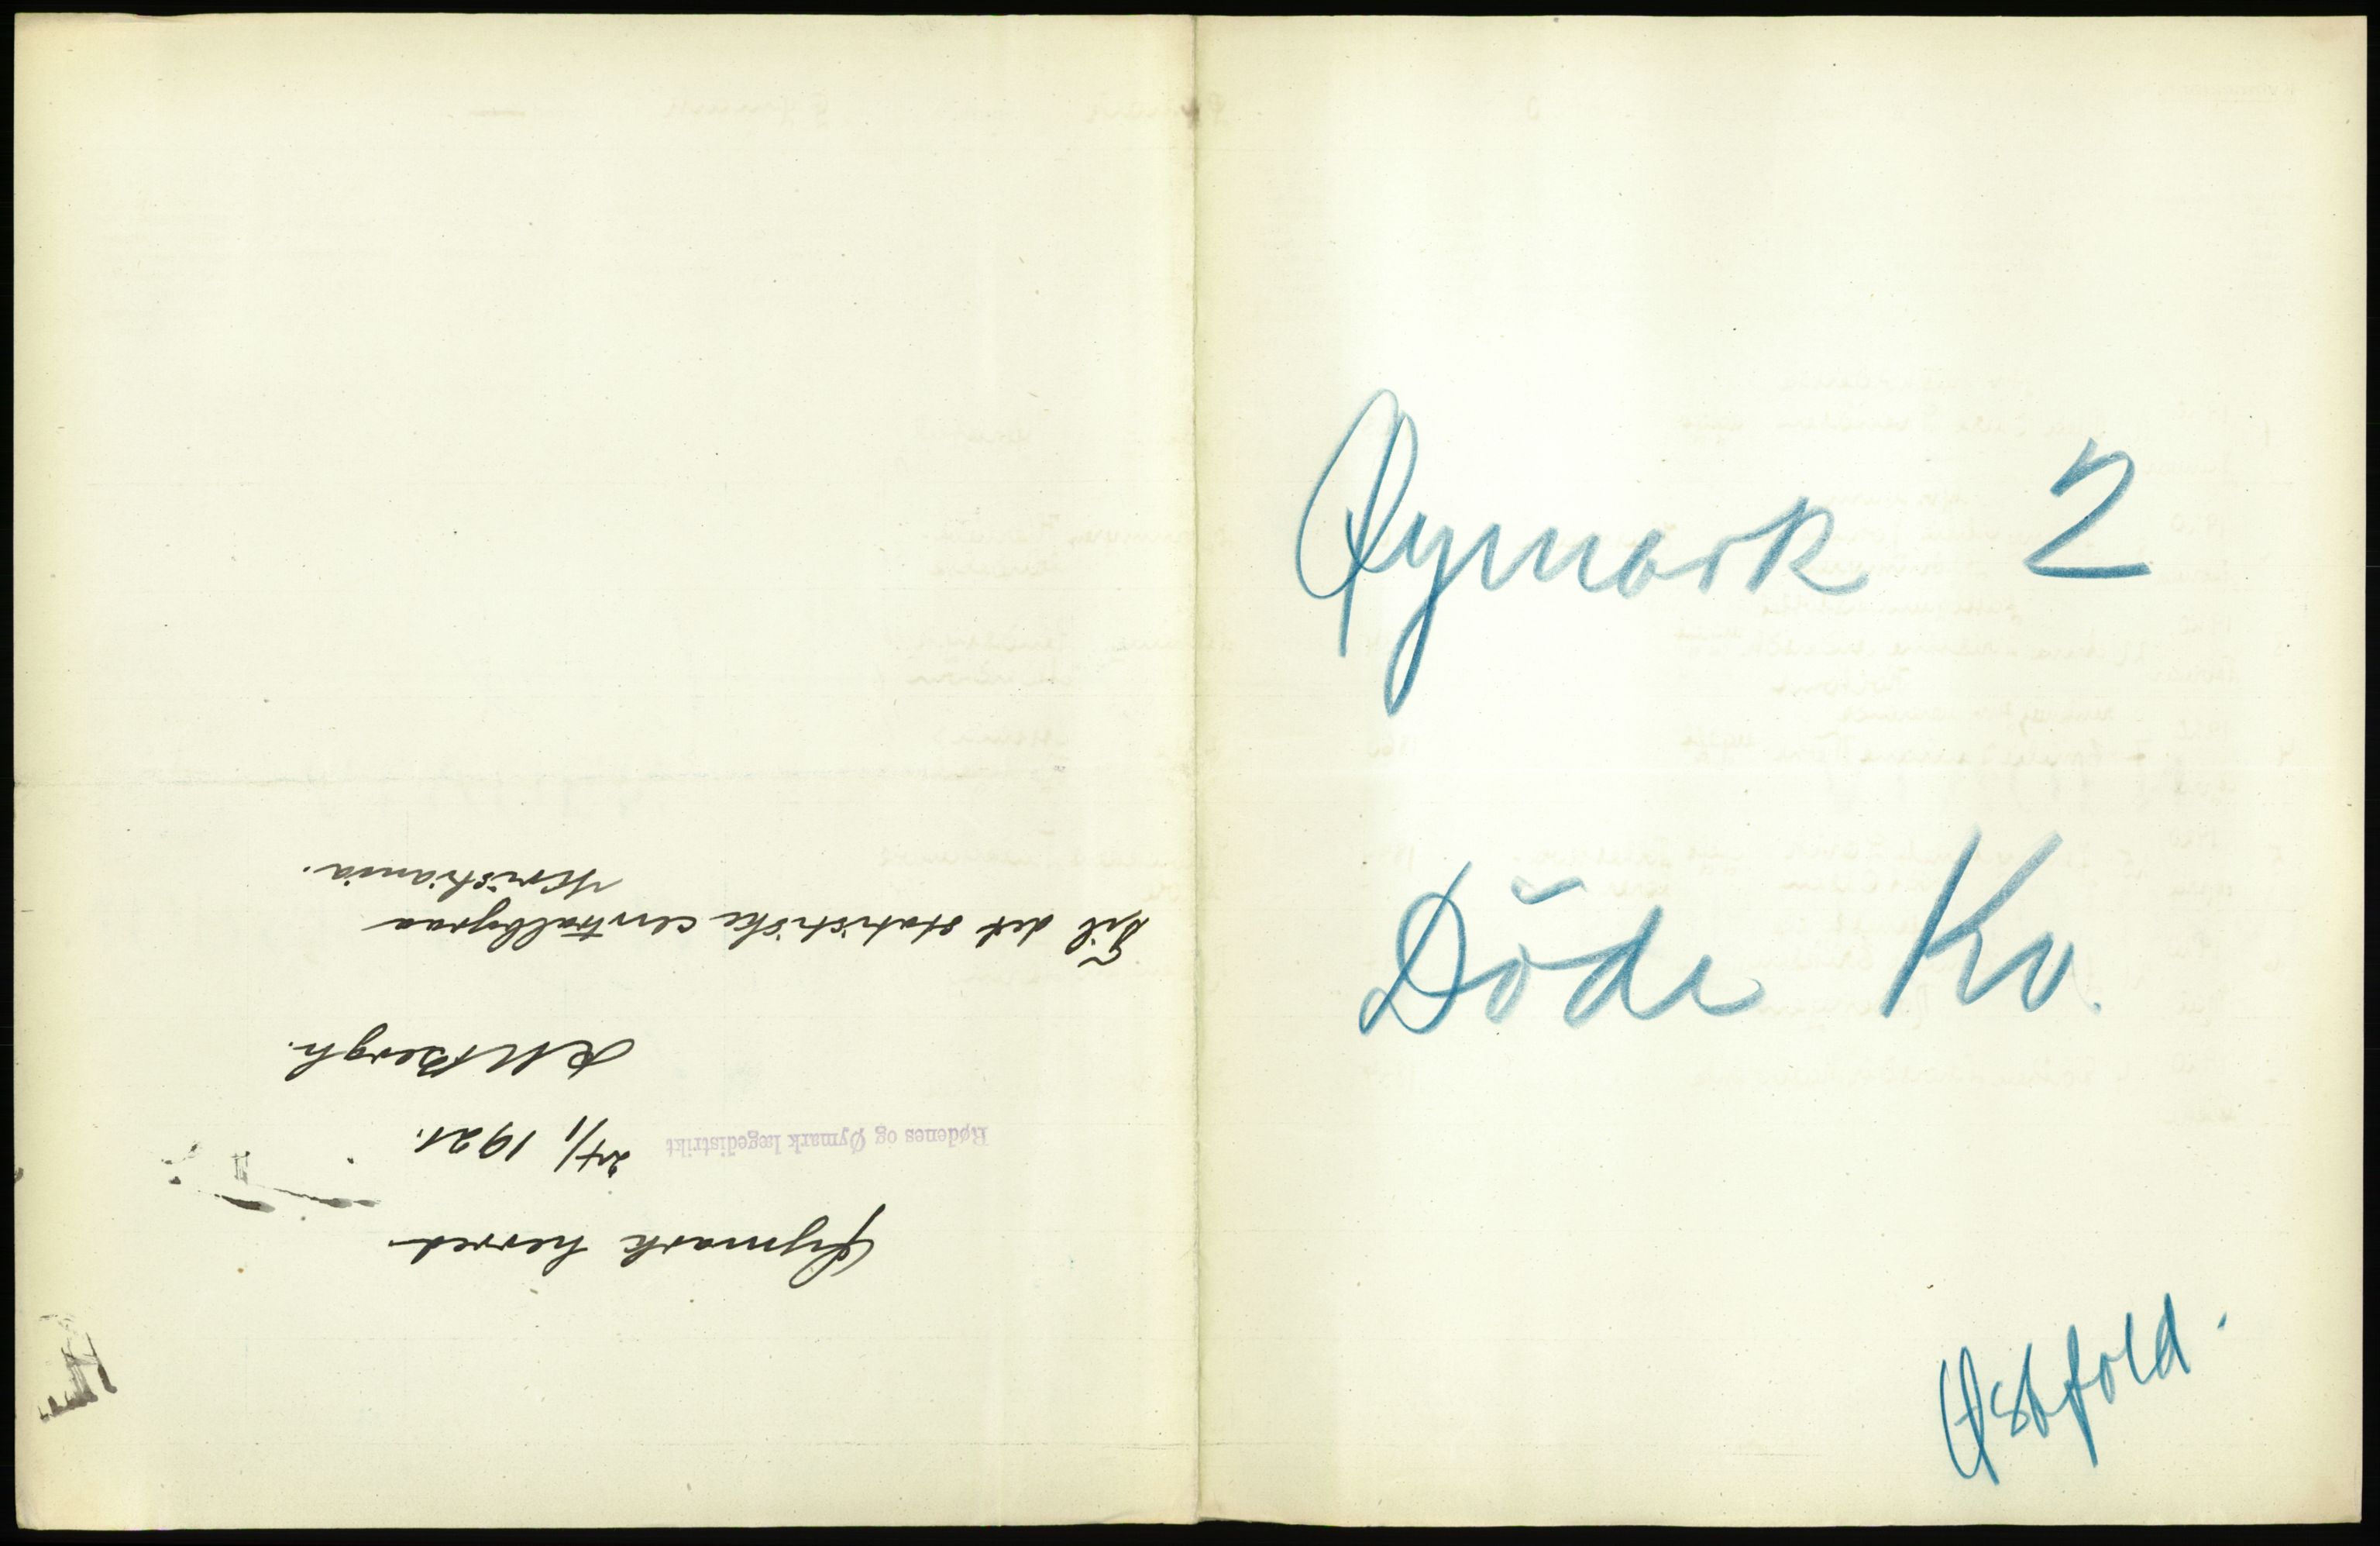 Øymark herred.
Rødenes og Øymark lægedistrikt
24/1 1921.
Bergh.
Til det statistiske centralbyraa
Kristiania.
Øymark 2
Döde Kv.
Østfold.